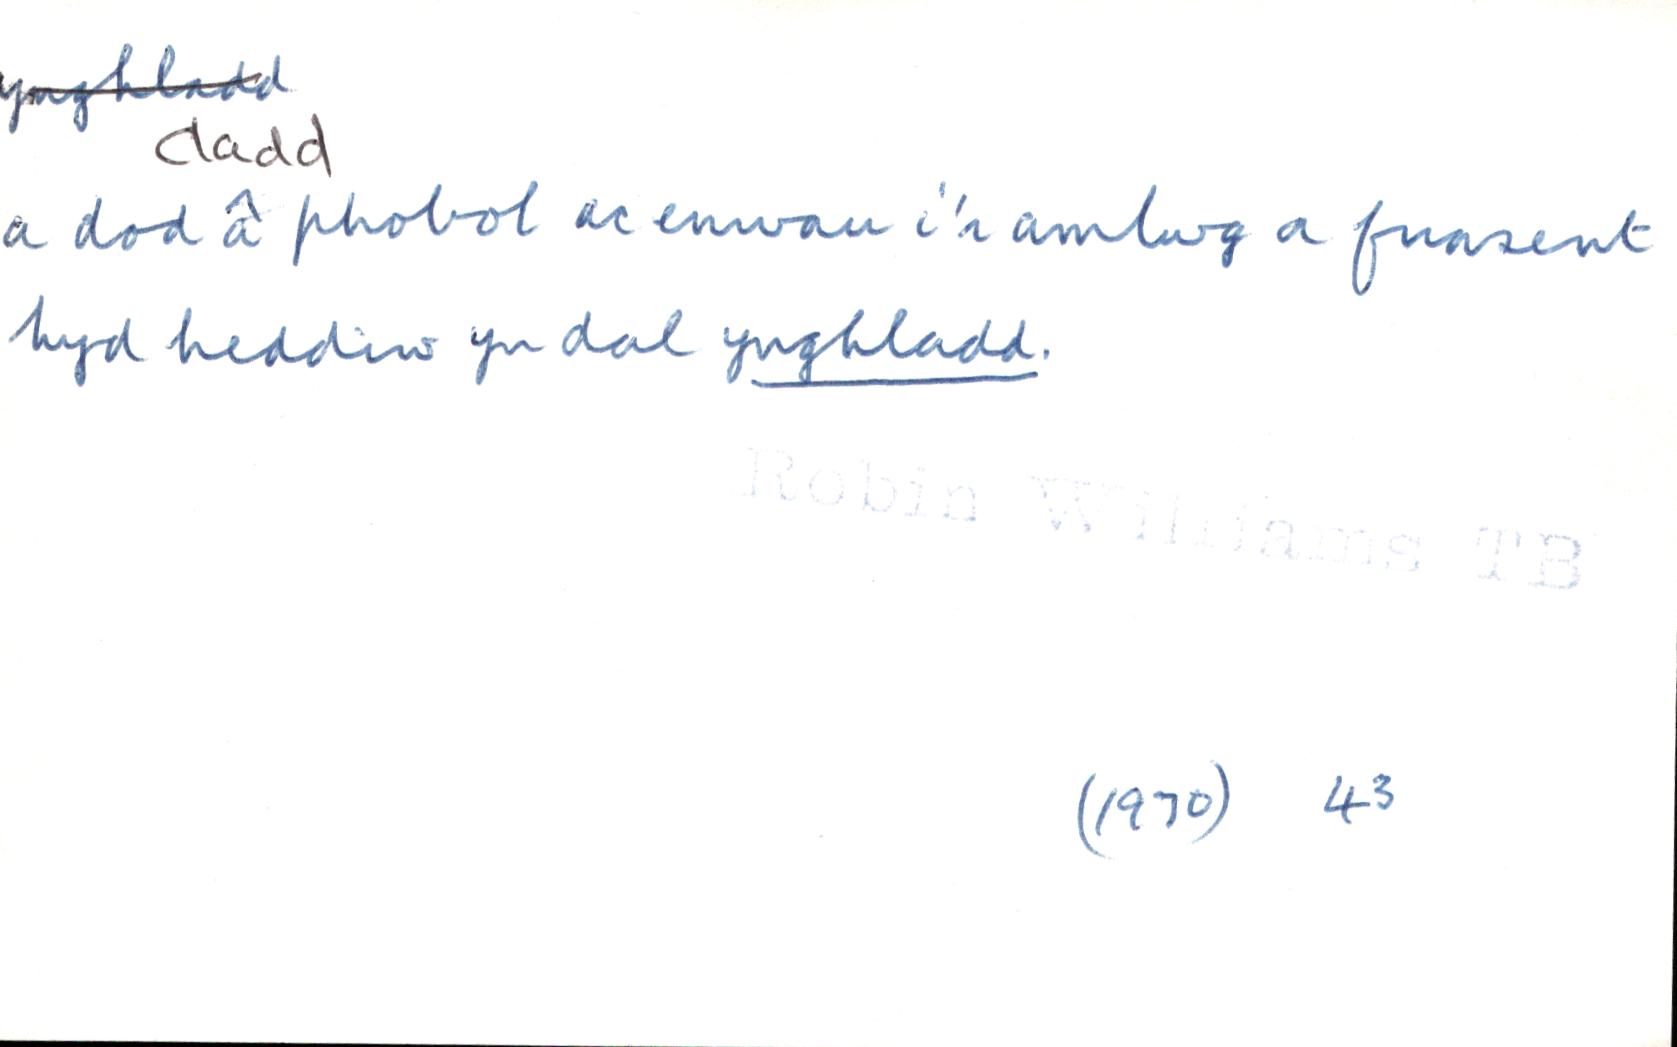 ynghladd
cladd
a dod â phobol ac enwau i'r amlwg a fuasent
hyd heddiw yn dal ynghladd.
Robin Williams TB
(1970) 43